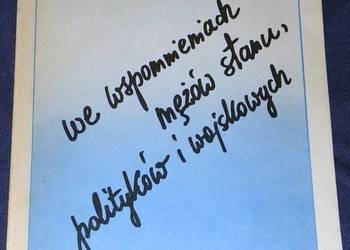 we wspomnieniach
mężów stanu,
polityków i wojskowych